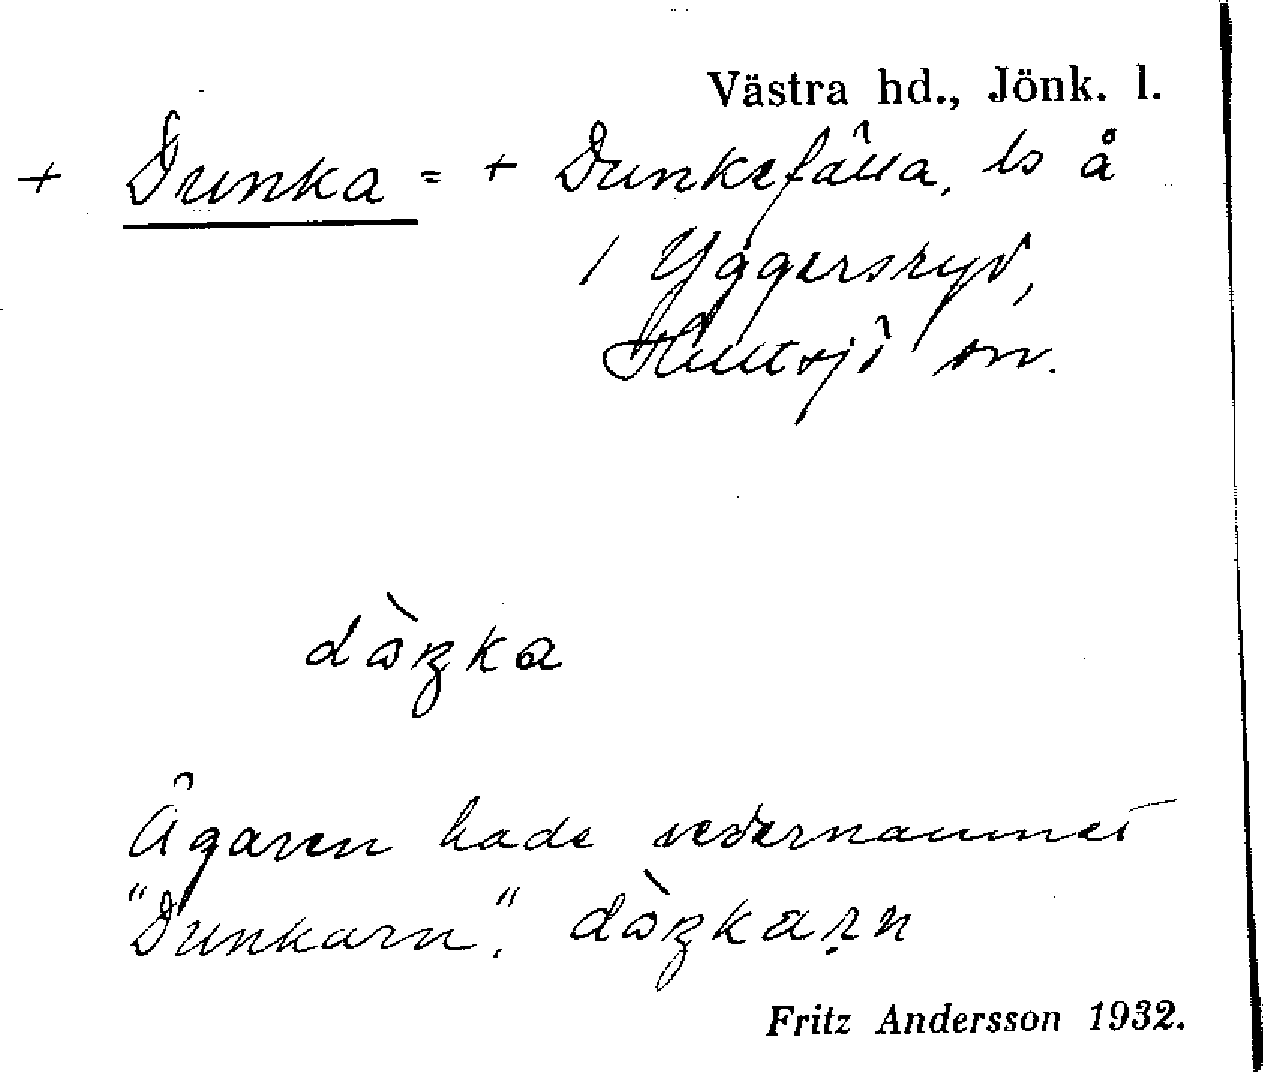 Västra hd., Jönk. l.
+ Dunka = + Dunkefälla, ls å
1 Yggersryd,
Hultsjö sn.
dàꞑka
Ägaren hade vedernamnet
"Dunkarn". dàꞑkaṛn
Fritz Andersson 1932.